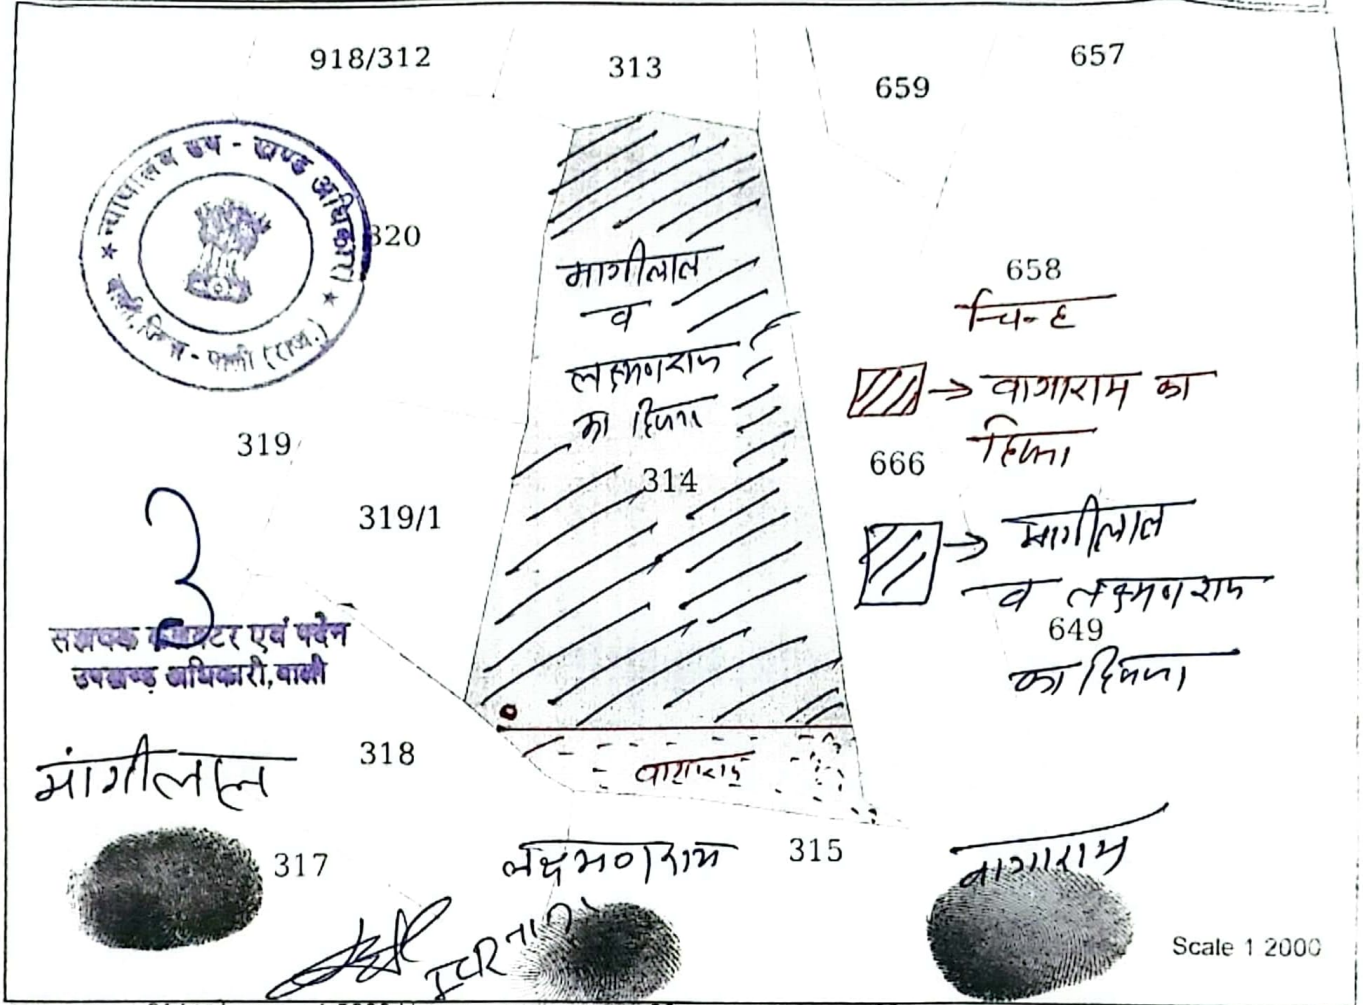 918/312
313
659
657
न्यायालय उप - खण्ड अधिकारी
बाली, जिला - पाली (राज.)
320
मागीलाल
व
लक्ष्मणराम
का हिस्सा
658
चिन्ह
→ वागाराम का
हिस्सा
319
314
666
319/1
→ मागीलाल
व लक्ष्मणराम
649
का हिस्सा
सहायक कलक्टर एवं पदेन
उपखण्ड अधिकारी, बाली
318
वागाराम
मांगीलाल
317
लक्ष्मणराम
315
वागाराम
Scale 1 2000